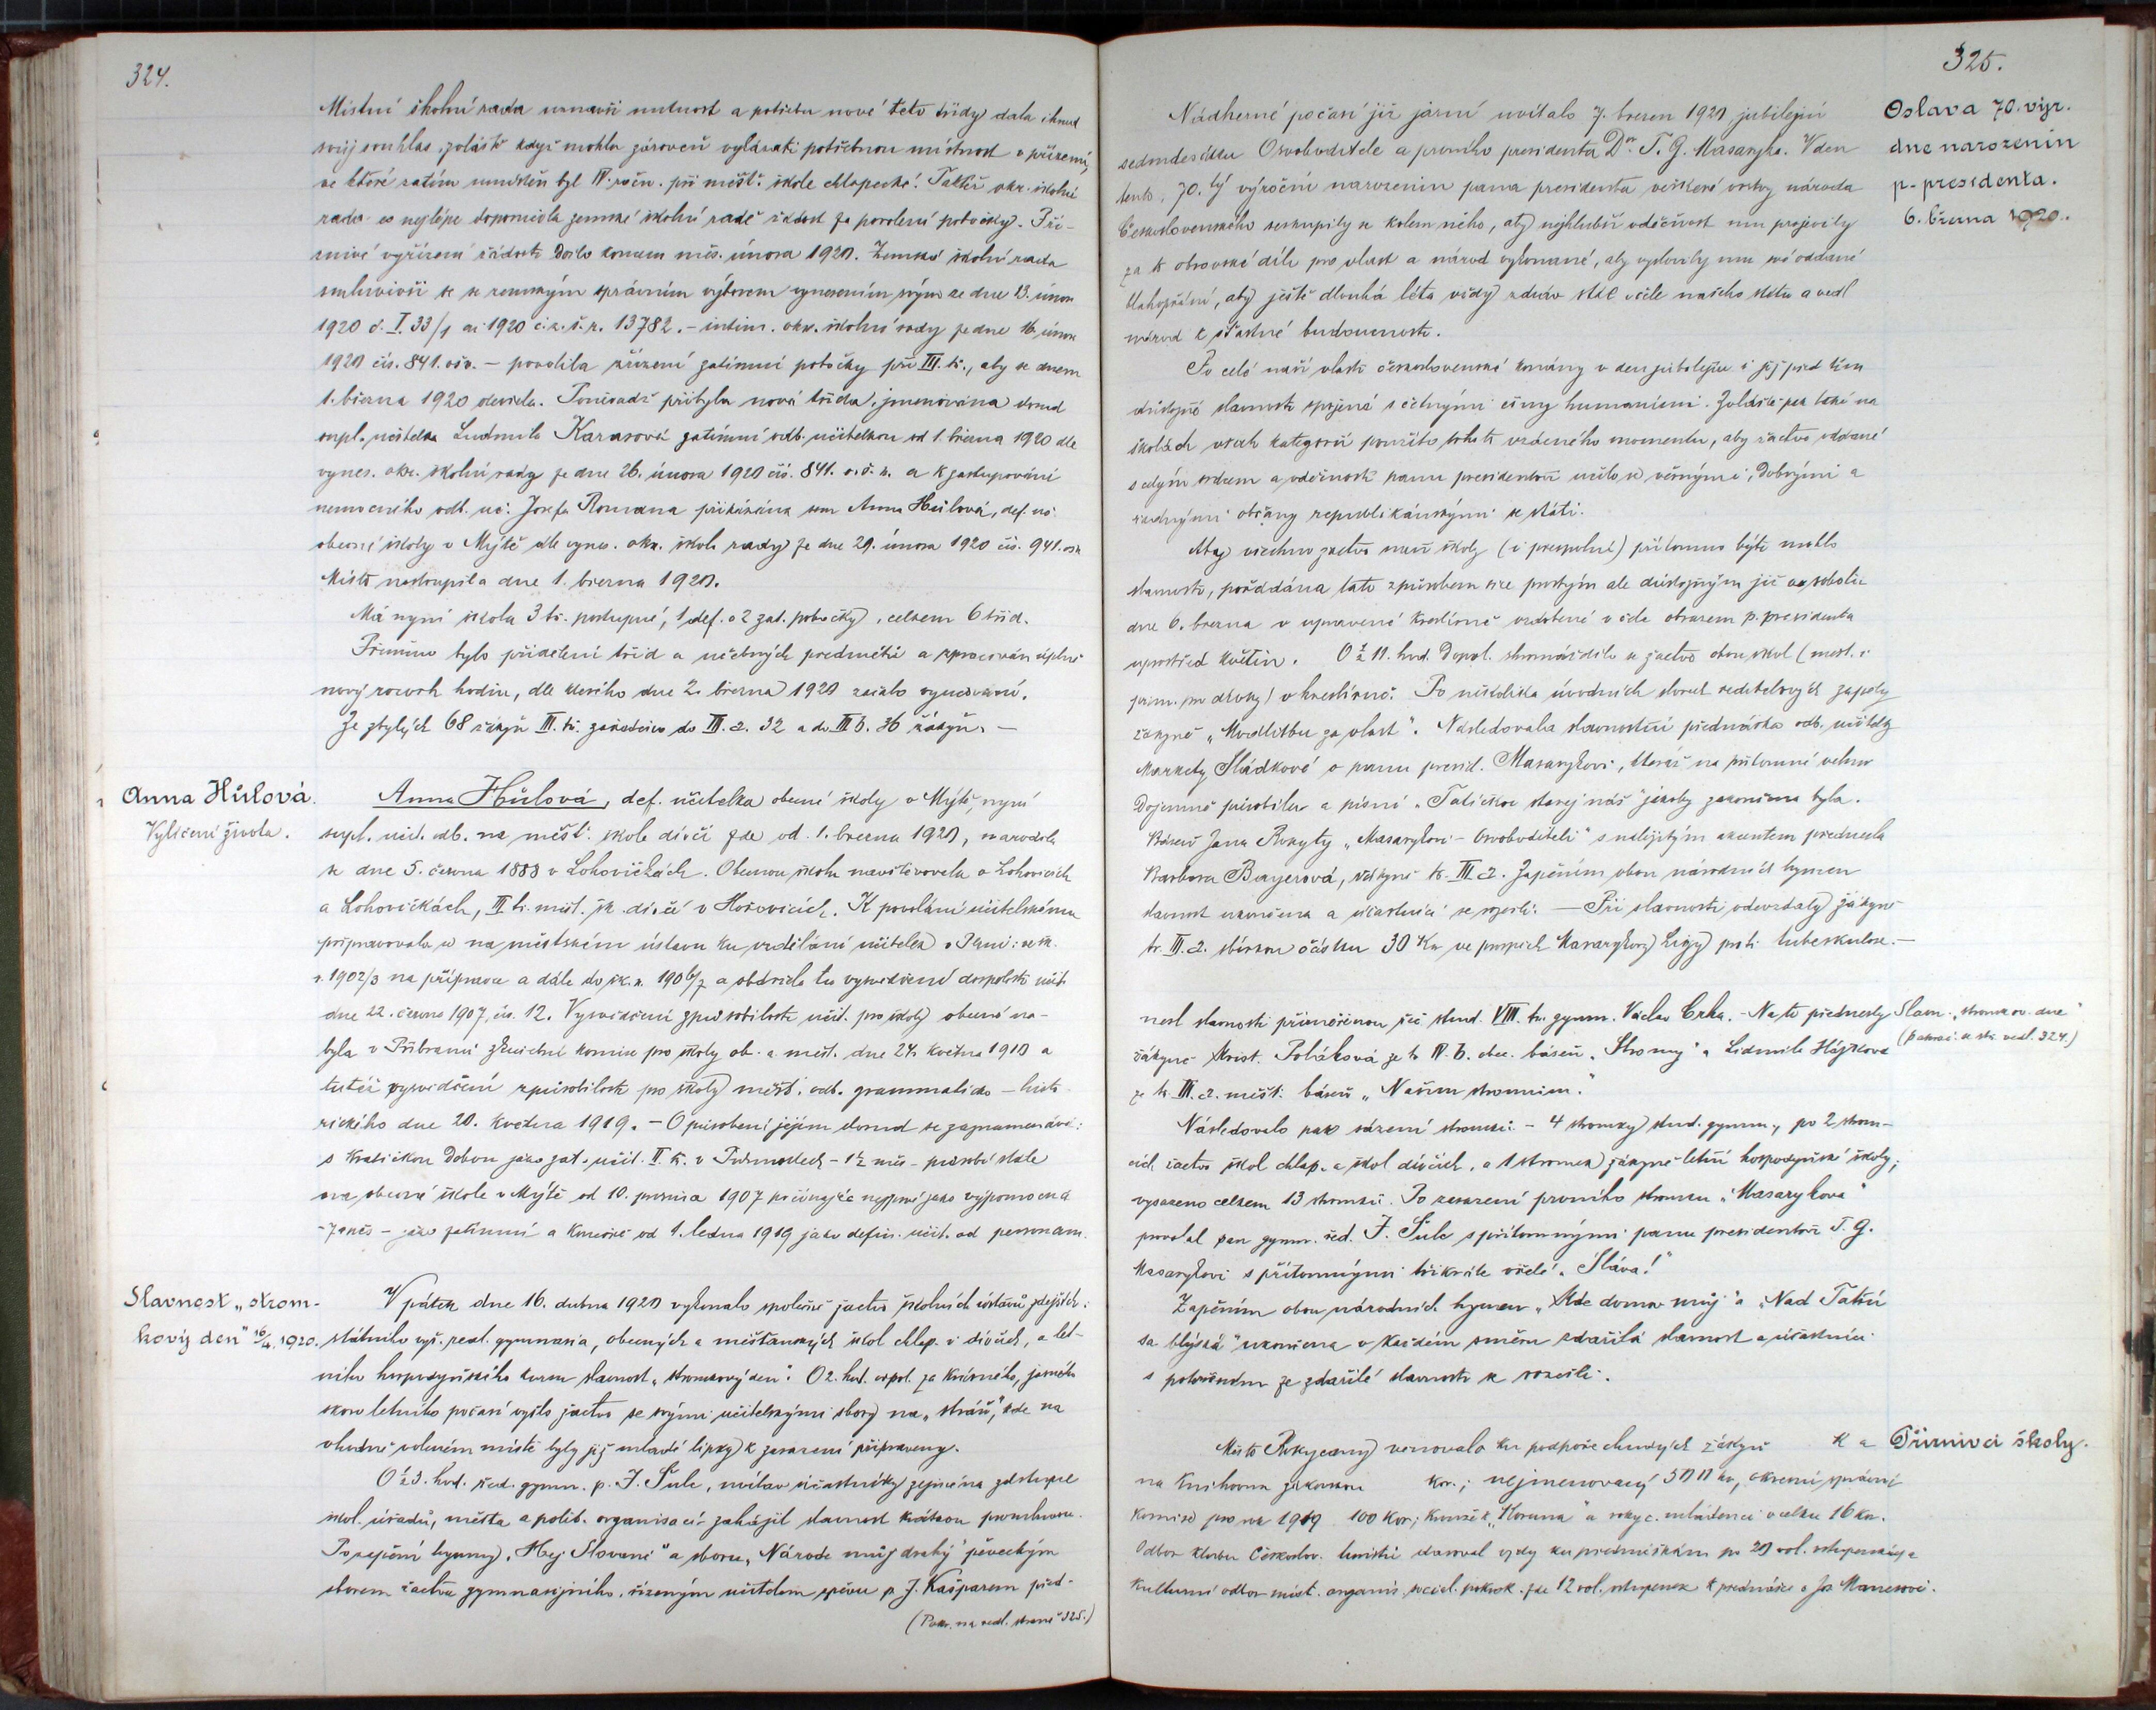 324.
Místní školní rada uznavši nutnost a potřebu nové této třídy dala ihned
svůj souhlas, zvláště když mohla zároveň vykázati potřebnou místnost v přízemí,
ve které zatím umístěn byl IV. ročn. při měšť. škole chlapecké. Taktéž okr. školní
rada co nejlépe doporučila zemské školní radě žádost za povolení pobočky. Pří-
znivé vyřízení žádosti došlo koncem měs. února 1920. Zemská školní rada
smluvivši se se zemským správním výborem vynesením svým ze dne 13. února
1920 č. I. 33/1 ai 1920 č. z. š. r. 13782. – intim. okr. školní rady ze dne 16. února
1920 čís. 841. ošr. – povolila zřízení zatímní pobočky při III. tř., aby se dnem
1. března 1920 otevřela. Poněvadž přibyla nová třída, jmenována dosud
supl. učitelka Ludmila Karasová zatímní odb. učitelkou od 1. března 1920 dle
vynes. okr. školní rady ze dne 26. února 1920 čís. 841. o. š. r. a k zastupování
nemocného odb. uč. Josefa Romana přikázána sem Anna Hůlová, def. uč.
obecné školy v Mýtě dle vynes. okr. škol. rady ze dne 29. února 1920 čís. 941. ošr.
Místo nastoupila dne 1. března 1920.
Má nyní škola 3 tř. postupné, 1 def. a 2 zat. pobočky, celkem 6 tříd.
Změněno bylo přidělení tříd a učebných předmětů a zpracován úplně
nový rozvrh hodin, dle kterého dne 2. března 1920 začalo vyučování.
Ze zbylých 68 žákyň III. tř. zařaděno do III. a. 32 a do III b. 36 žákyň. –
Anna Hůlová.
Vylíčení života.
Anna Hůlová, def. učitelka obecné školy v Mýtě, nyní
supl. uč. odb. na měšť. škole dívčí zde od 1. března 1920, narodila
se dne 5. června 1888 v Lohovičkách. Obecnou školu navštěvovala v Lohovicích
a Lohovičkách, III tř. měšť. šk. dívčí v Hořovicích. K povolání učitelskému
připravovala se na městském ústavu ku vzdělání učitelek v Plzni: ve šk.
r. 1902/3 na přípravce a dále do šk. r. 1906/7 a obdržela tu vysvědčení dospělosti učit.
dne 22. června 1907, čís. 12. Vysvědčení způsobilosti učit. pro školy obecné na-
byla v Příbrami zkušební komise pro školy ob. a měšť. dne 24. května 1910 a
tutéž vysvědčení způsobilosti pro školy měšť. odb. grammaticko – histo
rického dne 20. května 1919. – O působení jejím dosud se zaznamenává:
s kratičkou dobou jako zat. učit. II. tř. v – 1½ měs. – působí stále
na obecné škole v Mýtě od 10. prosince 1907 počínajíc nejprvé jako výpomocná
– zatés – jako zatímní a konečně od 1. ledna 1919 jako defin. učit. ad personam.
Slavnost „strom-
kový den“ 16/4. 1920.
V pátek dne 16. dubna 1920 vykonalo společně žactvo školních ústavů zdejších:
státního vyš. real. gymnasia, obecných a měšťanských škol chlap. i dívčích, a let-
ního hospodyňského kursu slavnost „stromkový den“. O 2. hod. odpol. za krásného, jasného
skoro letního počasí vyšlo žactvo se svými učitelskými sbory na „stráň“, kde na
vhodně voleném místě byly již mladé lipky k zasazení připraveny.
O ½3. hod. řed. gymn. p. J. Šulc, uvítav účastníky zejména zástupce
škol. úřadů, města a polit. organisací zahájil slavnost krátkou promluvou.
Po zapění hymny „Hej Slované“ a sboru „Národe můj drahý“ pěveckým
sborem žactva gymnasijního, řízeným učitelem zpěvu p. J. Kašparem před-
(Pokr. na vedl. straně 325.)
325.
Oslava 70. výr.
dne narozenin
p. presidenta.
6. března 1920.
Nádherné počasí již jarní uvítalo 7. březen 1920 jubilejní
sedmdesátku Osvoboditele a prvního presidenta Dr. T. G. Masaryka. V den
tento, 70. tý výroční narozenin pana presidenta veškeré vrstvy národa
Československého seskupily se kolem něho, aby nejhlubší vděčnost mu projevily
za to obrovské dílo pro vlast a národ vykonané, aby vyslovily mu své oddané
blahopřání, aby ještě dlouhá léta vždy zdráv stál v čele našeho státu a vedl
národ k šťastné budoucnosti.
Po celé naší vlasti československé konány v den jubilejní i již před tím
důstojné slavnosti spojené s četnými činy humánními. Zvláště pak také na
školách všech kategorií použito tohoto vzácného momentu, aby žactvo oddané
s celým srdcem a vděčností panu presidentovi učilo se věrnými, dobrými a
řádnými občany republikánskými se státi.
Aby všechno žactvo naší školy (i přespolní) přítomno býti mohlo
slavnosti, pořádána tato způsobem sice prostým ale důstojným již v sobotu
dne 6. března v upravené kreslírně ozdobené v čele obrazem p. presidenta
uprostřed květin. O ½ 11. hod. dopol. shromáždilo se žactvo obou škol (měšť. i
pro dívky) v kreslírně. Po několika úvodních slovech ředitelových zapěly
žákyně „Modlitbu za vlast“. Následovala slavnostní přednáška odb. učitelky
Markety Sládkové o panu presid. Masarykovi, kteráž na přítomné velmi
dojemně působila a písní „Tatíčku starej náš“ jakoby zakončena byla.
Báseň Jana Rokyty „Masarykovi – Osvoboditeli“ s náležitým akcentem přednesla
Barbora Bayerová, žákyně tř. III. a. Zapěním obou národních hymen
slavnost ukončena a účastníci se rozešli. – Při slavnosti odevzdaly žákyně
tř. III. a. sbírkou částku 30 Kor ve prospěch Masarykovy Ligy proti tuberkulose. –
Slavn. „stromkov. dne“
(pokrač. ze str. vedl. 324.)
nesl slavnosti přiměřenou řeč stud. VIII. tř. gymn. Václav Crha. – Na to přednesly
žákyně Krist. Poláková ze tř. IV. b. obec. báseň „Stromy“ a Lidmila Hájková
ze tř. III. a. měšť. báseň „Našim stromům.“
Následovalo pak sázení stromků. – 4 stromky stud. gymn., po 2 strom-
cích žactvo škol chlap. a škol dívčích, a 1 stromek žákyně letní hospodyňské školy;
vysazeno celkem 13 stromků. Po zasazení prvního stromku „Masarykova“
provolal pan gymn. řed. J. Šulc s přítomnými panu presidentovi T. G.
Masarykovi s přítomnými třikráte vřelé „Sláva!“
Zapěním obou národních hymen „Kde domov můj“ a „Nad Tatrú
sa blýská“ ukončena v každém směru zdařilá slavnost a účastníci
s potěšením ze zdařilé slavnosti se rozešli.
Příznivci školy.
Město Rokycany věnovalo ku podpoře chudých žákyň K a
na knihovnu žákovskou kor.; nejmenovaný 50 K, okresní správní
komise pro rok 1919 100 kor; kroužek „Koruna“ a rokyc. mládenci v celku 16 kor.
Odbor klubu Českoslov. turistů daroval vždy ku přednáškám po 20 vol. vstupenkách a
kulturní odbor míst. organis. social. pokrok. zde 12 vol. vstupenek k přednášce o Jos. Manesovi.